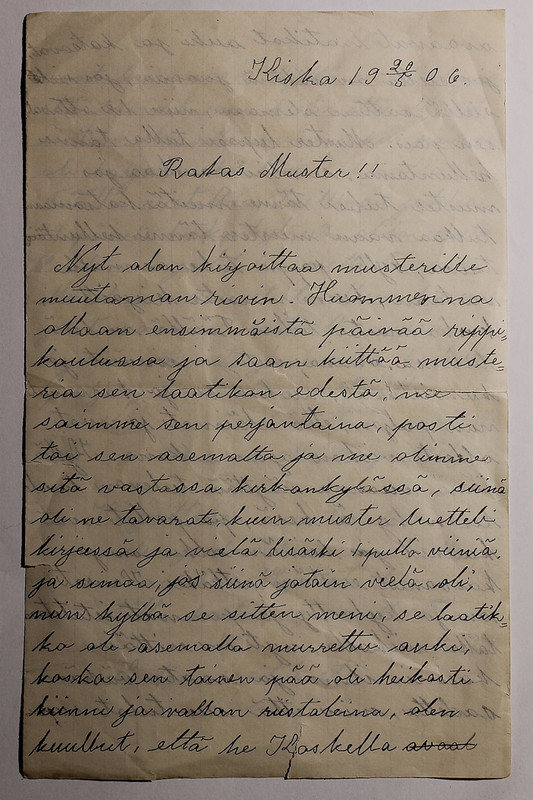 Kiska 19 20/5 06.
Rakas Muster!!
Nyt alan kirjoittaa musterille
muutaman rivin. Huommenna
ollaan ensimmäistä päivää rippi=
koulussa ja saan kiittää muste=
ria sen laatikan edestä, me
saimme sen perjantaina, posti
toi sen asemalta ja me olimme
sitä vastassa kirkonkylässä, siinä
oli ne tavarat, kuin muster luetteli
kirjeissä ja vielä lisäski 1 pullo viiniä
ja simaa, jos siinä jotain vielä oli,
niin kyllä se sitten meni, se laatik=
ko oli asemalla murrettu auki,
koska sen toinen pää oli heikosti
kiinni ja vallan ristaleina, olen
kuullut, että he Koskella avaat